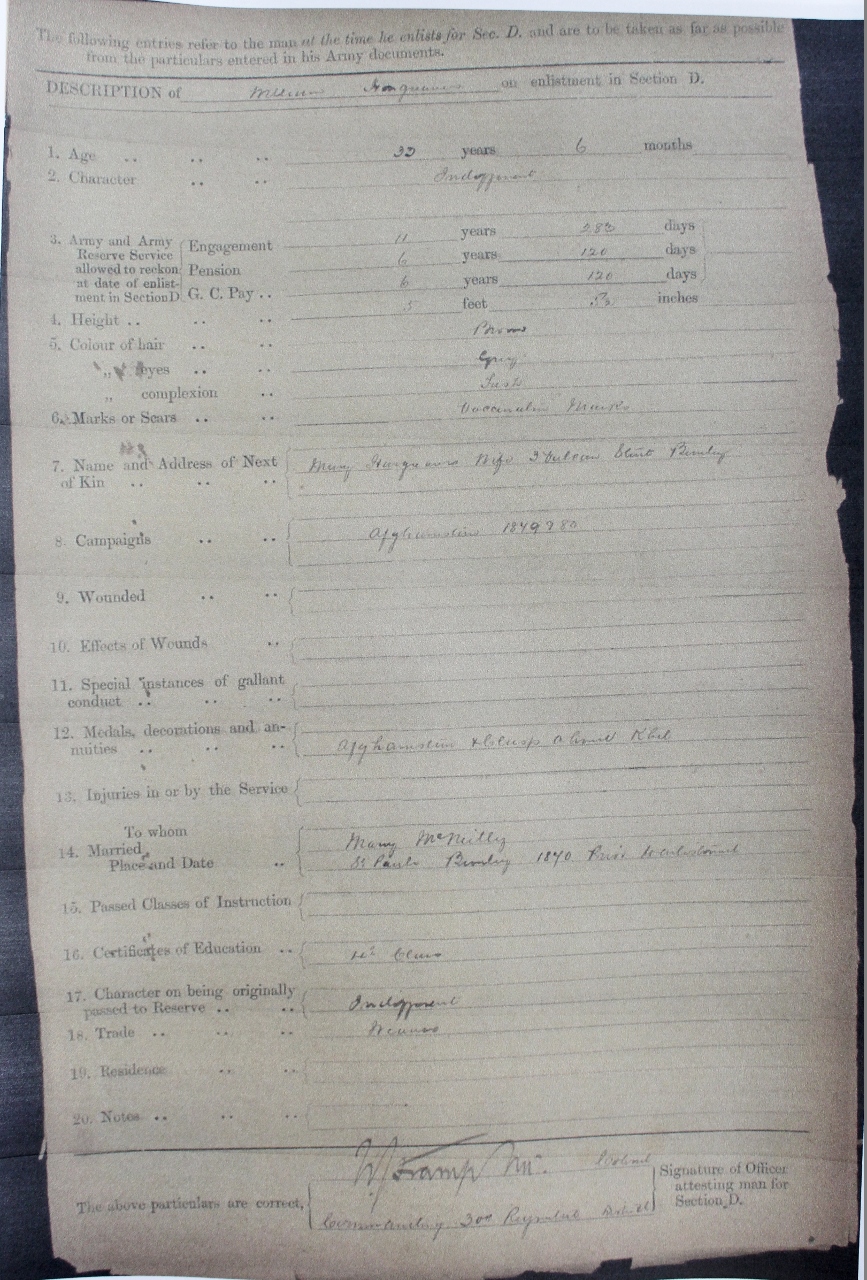 The following entries refer to the man at the time he enlists for Sec. D. and are to be taken as far as possible
from the particulars entered in his Army documents.
DESCRIPTION of William Hargreaves on enlistment in Section D.
1. Age .. .. .. years 6 months
2. Character .. .. Indifferent
3. Army and Army Reserve Service allowed to reckon at date of enlistment in Section D
Engagement 11 years 283 days
Pension 6 years 120 days
G. C. Pay .. 6 years 120 days
4. Height .. .. .. 5 feet inches
5. Colour of hair .. .. Brown
„ eyes .. .. Grey
„ complexion .. Fresh
6. Marks or Scars .. .. Vaccination Marks
7. Name and Address of Next Mary Hargreaves Wife Vulcan Street Burnley
of Kin .. .. ..
8. Campaigns .. .. Afghanistan 1879 & 80
9. Wounded .. ..
10. Effects of Wounds ..
11. Special instances of gallant
conduct .. .. ..
12. Medals, decorations and an-
nuities .. .. .. Afghanistan & Clasp Ahmed Khel
13. Injuries in or by the Service
To whom Mary McNeilly
14. Married,
Place and Date .. St Pauls Burnley 1870 Prior to enlistment
15. Passed Classes of Instruction
16. Certificates of Education .. Class
17. Character on being originally
passed to Reserve .. .. Indifferent
18. Trade .. .. .. Weaver
19. Residence .. ..
20. Notes .. .. ..
Colonel
The above particulars are correct,
Commanding 30th Regimental District
Signature of Officer
attesting man for
Section D.